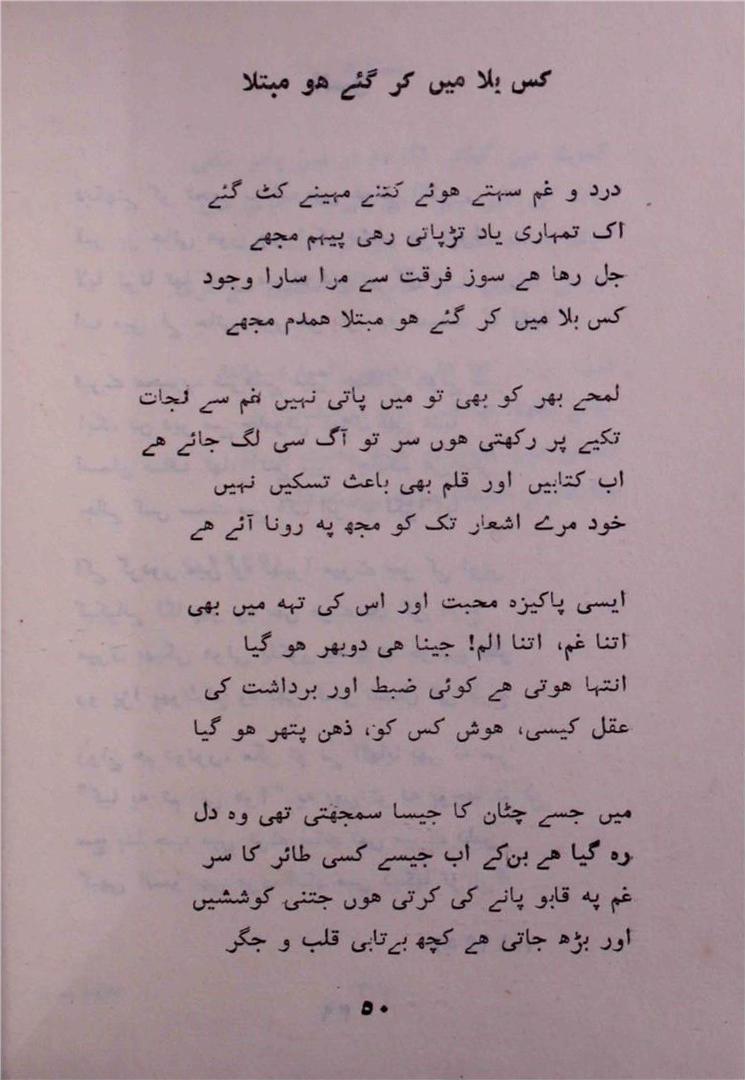 کس بلا میں کر گئے ھو مبتلا
درد و غم سہتے ھوئے کتنے مہینے کٹ گئے
اک تمہاری یاد تڑپاتی رھی پیہم مجھے
جل رھا ھے سوز فرقت سے مرا سارا وجود
کس بلا میں کر گئے ھو مبتلا ھمدم مجھے
لمحے بھر کو بھی تو میں پاتی نہیں غم سے نجات
تکیے پر رکھتی ھوں سر تو آگ سی لگ جائے ھے
اب کتابیں اور قلم بھی باعث تسکیں نہیں
خود مرے اشعار تک کو مجھ پہ رونا آئے ھے
ایسی پاکیزہ محبت اور اس کی تہہ میں بھی
اتنا غم، اتنا الم! جینا ھی دوبھر ھو گیا
انتہا ھوتی ھے کوئی ضبط اور برداشت کی
عقل کیسی، ھوش کس کو، ذھن پتھر ھو گیا
میں جسے چٹان کا جیسا سمجھتی تھی وہ دل
رہ گیا ھے بن کے اب جیسے کسی طائر کا سر
غم پہ قابو پانے کی کرتی ھوں جتنی کوششیں
اور بڑھ جاتی ھے کچھ بے تابی قلب و جگر
۵۰